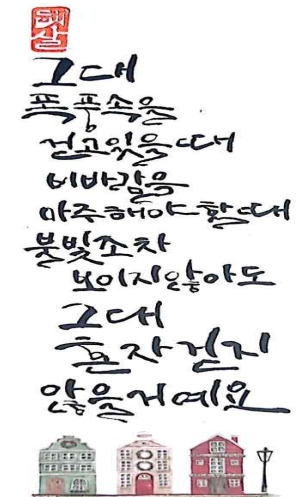 햇살
그대
폭풍속을
걷고있을때
비바람을
마주해야할때
불빛조차
보이지않아도
그대
혼자걷지
않을거예요